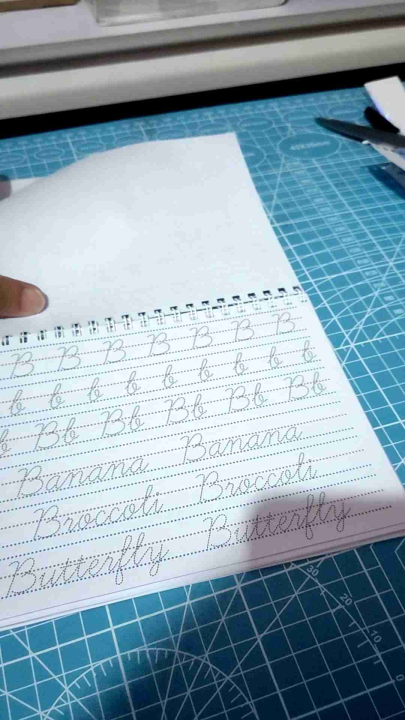 B B B B B B B
b b b b b b b b
b Bb Bb Bb Bb Bb
Banana Banana
Broccoli Broccoli
Butterfly Butterfly
30
20
10
0